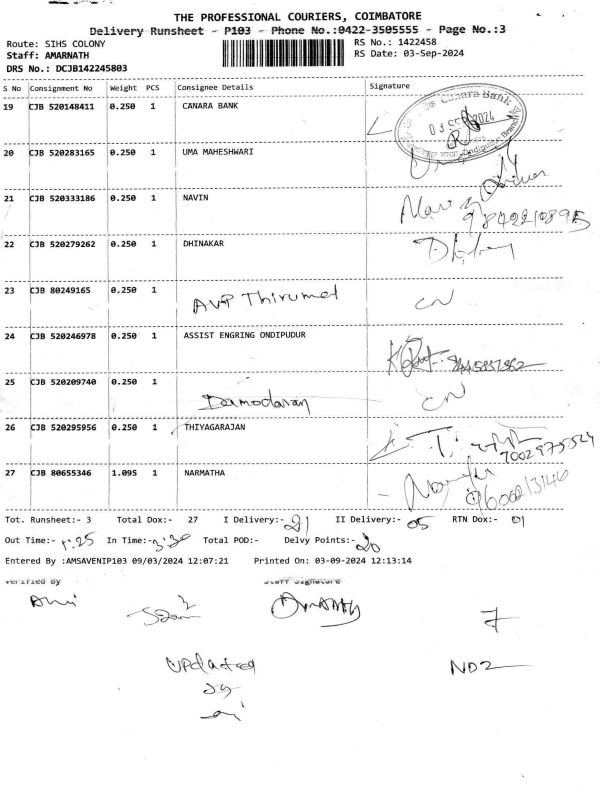 THE PROFESSIONAL COURIERS, COIMBATORE
Delivery Runsheet - P103 - Phone No.:0422-3505555 - Page No.:3
Route: SIHS COLONY
RS No.: 1422458
Staff: AMARNATH
RS Date: 03-Sep-2024
DRS No.: DCJB142245803
S No Consignment No Weight PCS Consignee Details Signature
19 CJB 520148411 0.250 1 CANARA BANK
Canara Bank
20 CJB 520283165 0.250 1 UMA MAHESHWARI
21 CJB 520333186 0.250 1 NAVIN
22 CJB 520279262 0.250 1 DHINAKAR
23 CJB 80249165 0.250 1 AVP Thirumal CN
24 CJB 520246978 0.250 1 ASSIST ENGRING ONDIPUDUR
25 CJB 520209740 0.250 1 Damodaran CN
26 CJB 520295956 0.250 1 THIYAGARAJAN
27 CJB 80655346 1.095 1 NARMATHA
Tot. Runsheet:- 3 Total Dox:- 27 I Delivery:- 21 II Delivery:- 05 RTN Dox:- 01
Out Time:- 1:25 In Time:- 3:30 Total POD:- Delvy Points:- 20
Entered By :AMSAVENIP103 09/03/2024 12:07:21 Printed On: 03-09-2024 12:13:14
Verified By Staff Signature
7
Updated ND2
by